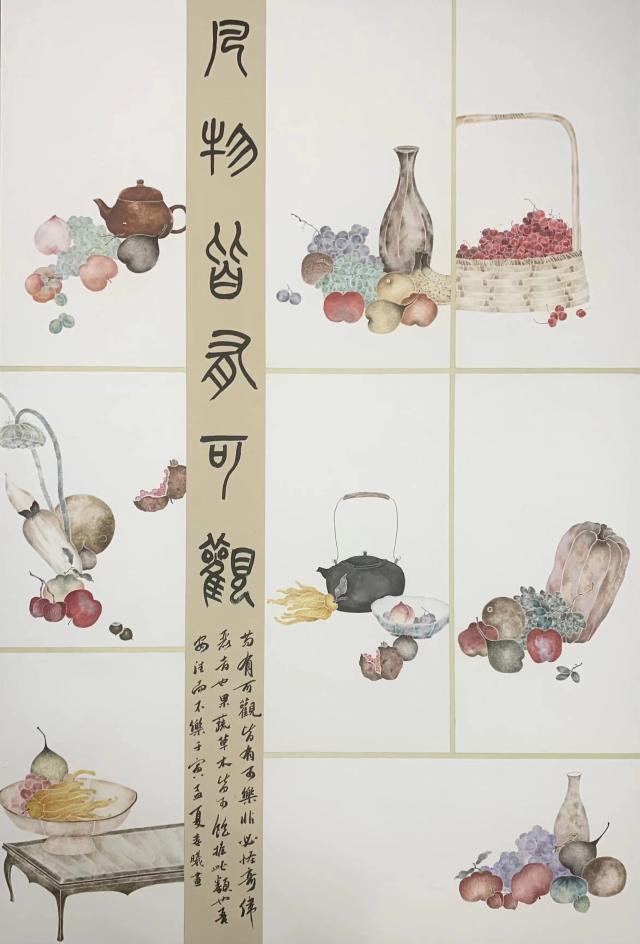 凡物皆有可觀
苟有可觀皆有可樂非必怪奇偉
麗者也果蔬草木皆可飽推此類也吾
安往而不樂壬寅孟夏曦畫